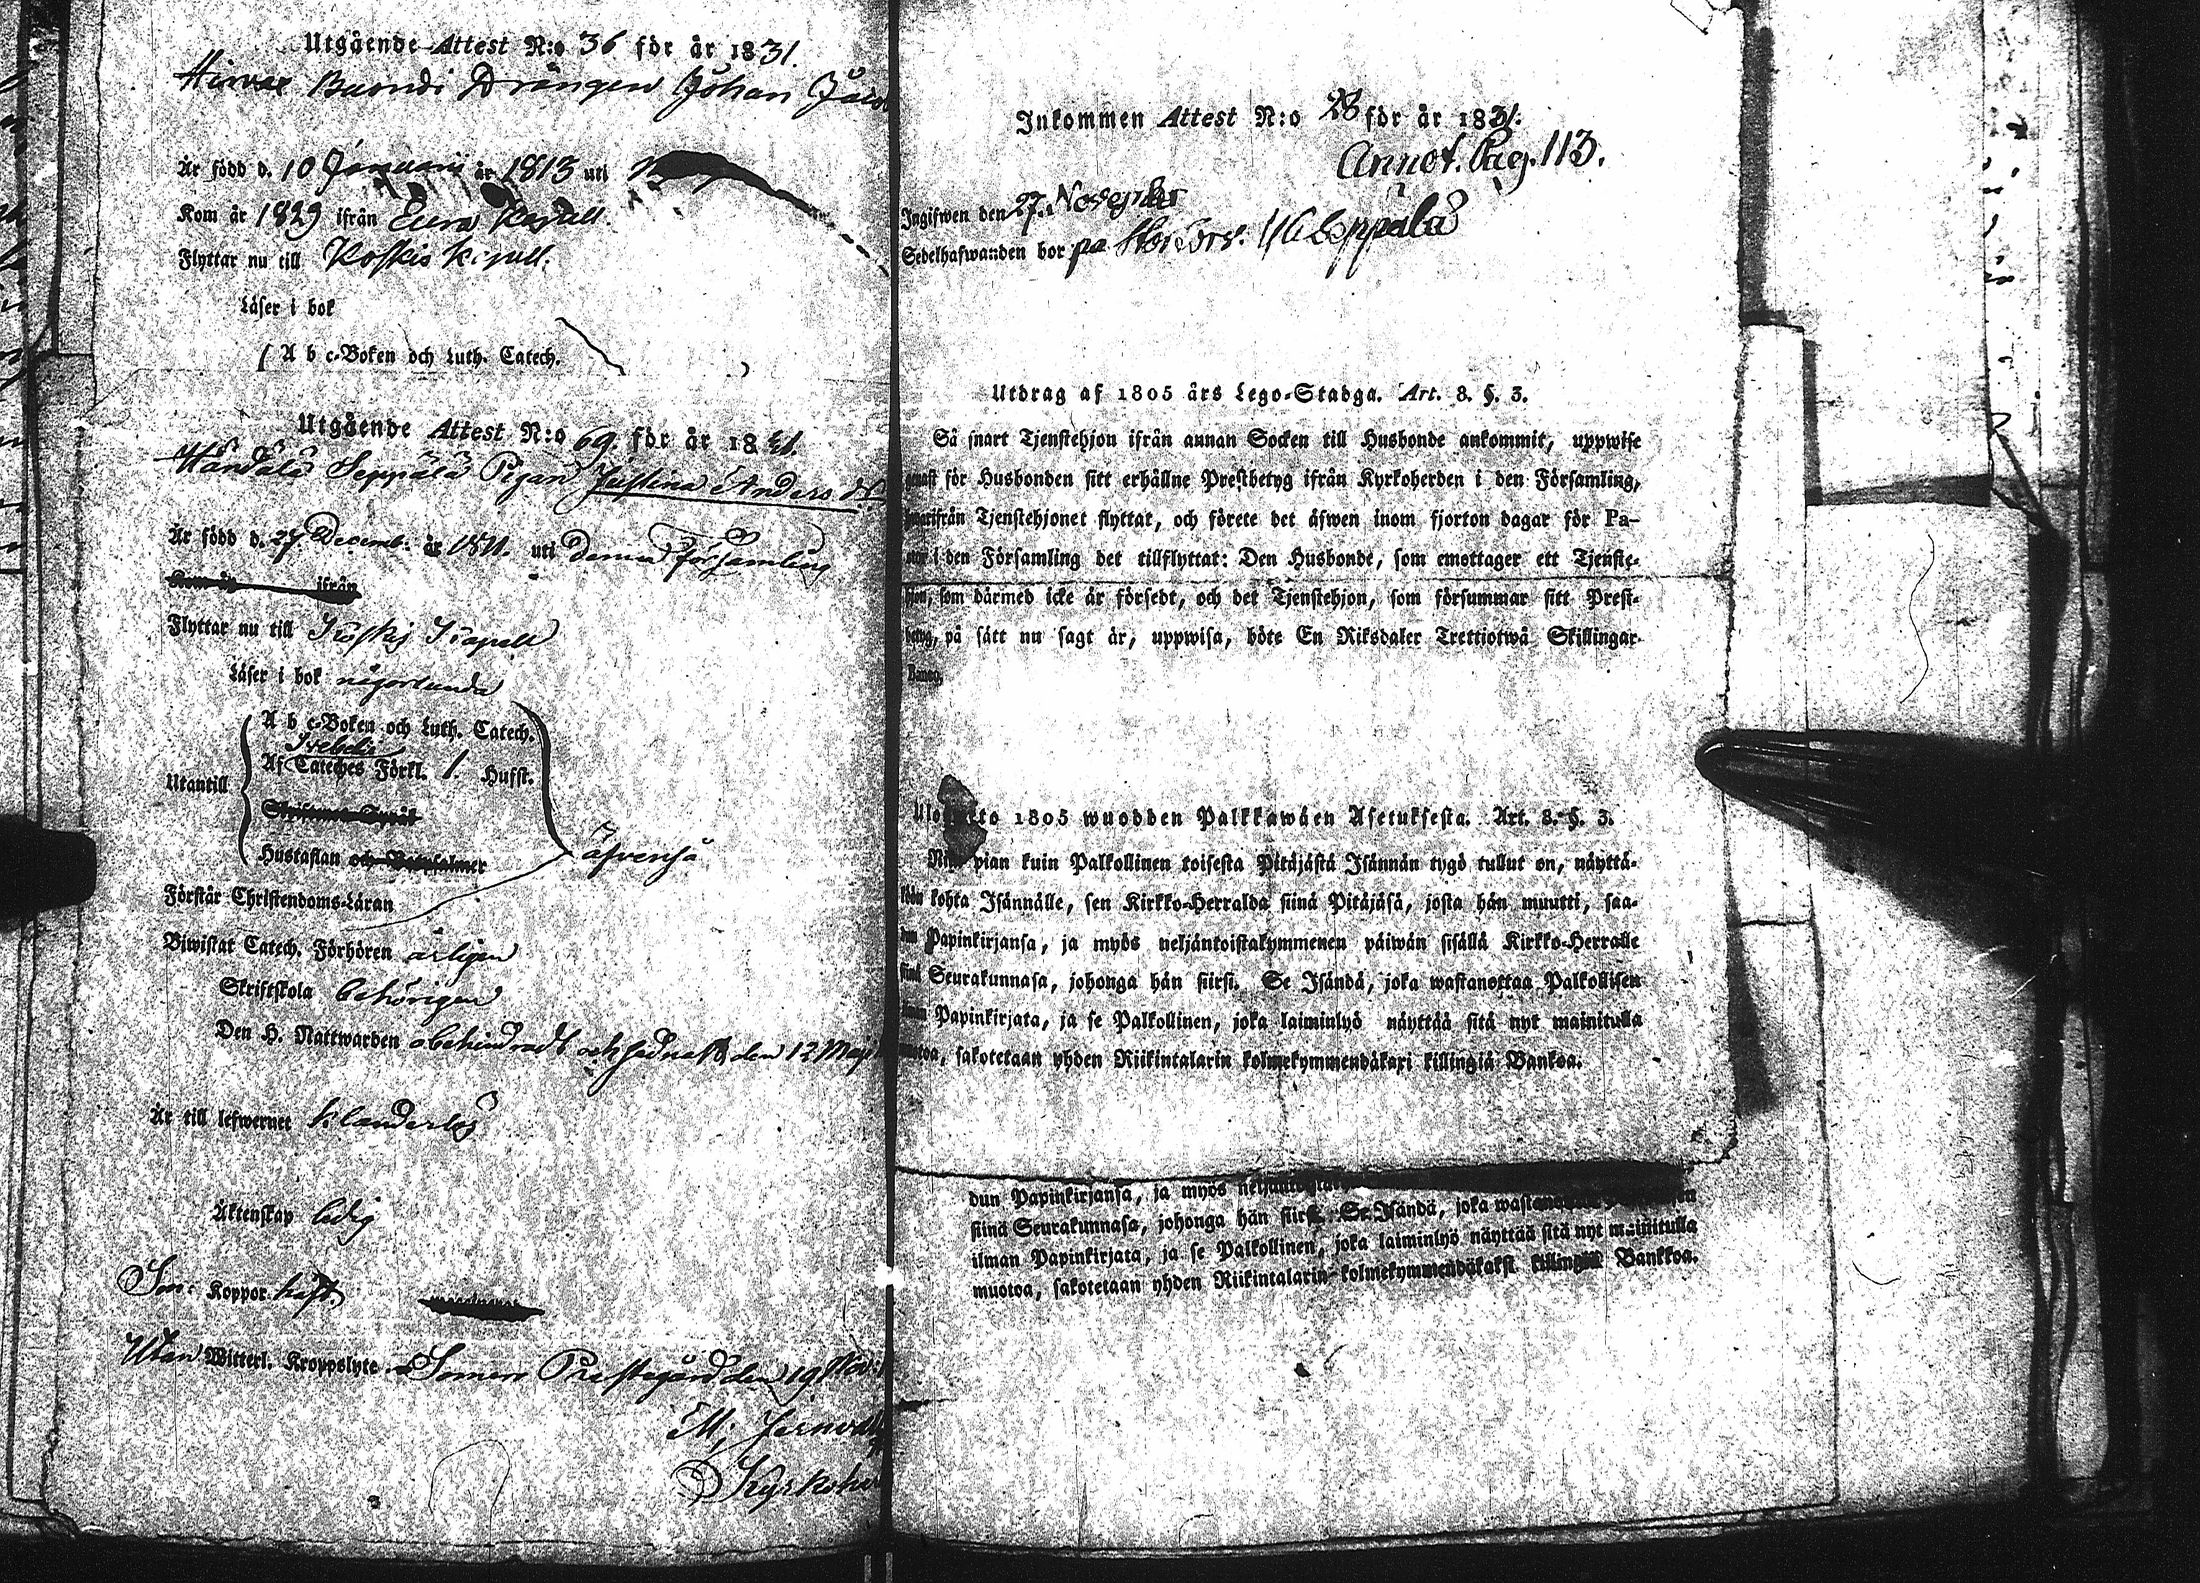 Utgående Attest N:o 36 för år 1831.
Drängen Johan
Är född d. 10 Januarii år 1813 uti
Kom år 1829 ifrån Eura Kapell
Flyttar nu till Koskis Kapell.
Läser i bok
A b c-Boken och Luth. Catech.
Utgående Attest N:o 69. för år 18
Seppälä Pigan Anders
Är född d. 27 Decemb. år 1811. uti denna församling
ifrån
Flyttar nu till Koskis Kapell
Läser i bok någorlunda
A b c-Boken och Luth. Catech.
Svebelii
Utantill
Af Cateches Förkl. 1. Hufst.
Hustaflan
äfvenså
Förstår Christendoms-Läran
Biwistat Catech. Förhören årligen
Skriftskola behörigen
Den H. Nattwarden obehindradt och sednast den 12 Maji
Är till lefwernet klanderlös
Äktenskap ledig
Koppor haft.
Utan Witterl. Kroppslyte. Somero Prestegård den 19 Nov:
M;
Inkommen Attest N:o 28 för år 1831.
Annot. Pag. 113.
Ingifwen den 27. November
Sedelhafwanden bor på
Utdrag af 1805 års Lego-Stadga. Art. 8. §. 3.
Så snart Tjenstehjon ifrån annan Socken till Husbonde ankommit, uppwise
genast för Husbonden sitt erhållne Prestbetyg ifrån Kyrkoherden i den Församling,
hwarifrån Tjenstehjonet flyttat, och förete det äfwen inom fjorton dagar för Pa-
stor i den Församling det tillflyttat: Den Husbonde, som emottager ett Tjenste-
hjon, som därmed icke är försedt, och det Tjenstehjon, som försummar sitt Prest-
betyg, på sätt nu sagt är, uppwisa, böte En Riksdaler Trettiotwå Skillingar
Banco.
1805 wuodden Palkkawäen Asetuksesta. Art. 8. §. 3.
pian kuin Palkollinen toisesta Pitäjästä Isännän tygö tullut on, näyttä-
köön kohta Isännälle, sen Kirkko-Herralda siinä Pitäjäsä, josta hän muutti, saa-
dun Papinkirjansa, ja myös neljäntoistakymmenen päiwän sisällä Kirkko-Herralle
siinä Seurakunnasa, johonga hän siirsi. Se Isändä, joka wastanottaa Palkollisen
ilman Papinkirjata, ja se Palkollinen, joka laiminlyö näyttää sitä nyt mainitulla
muotoa, sakotetaan yhden Riikintalarin kolmekymmendäkaxi killingiä Bankoa.
dun Papinkirjansa, ja myös
siinä Seurakunnasa, johonga hän siirsi. Se Isändä, joka
ilman Papinkirjata, ja se Palkollinen, joka laiminlyö näyttää sitä nyt mainitulla
muotoa, sakotetaan yhden Riikintalarin kolmekymmendäkaksi killingiä Bankkoa.